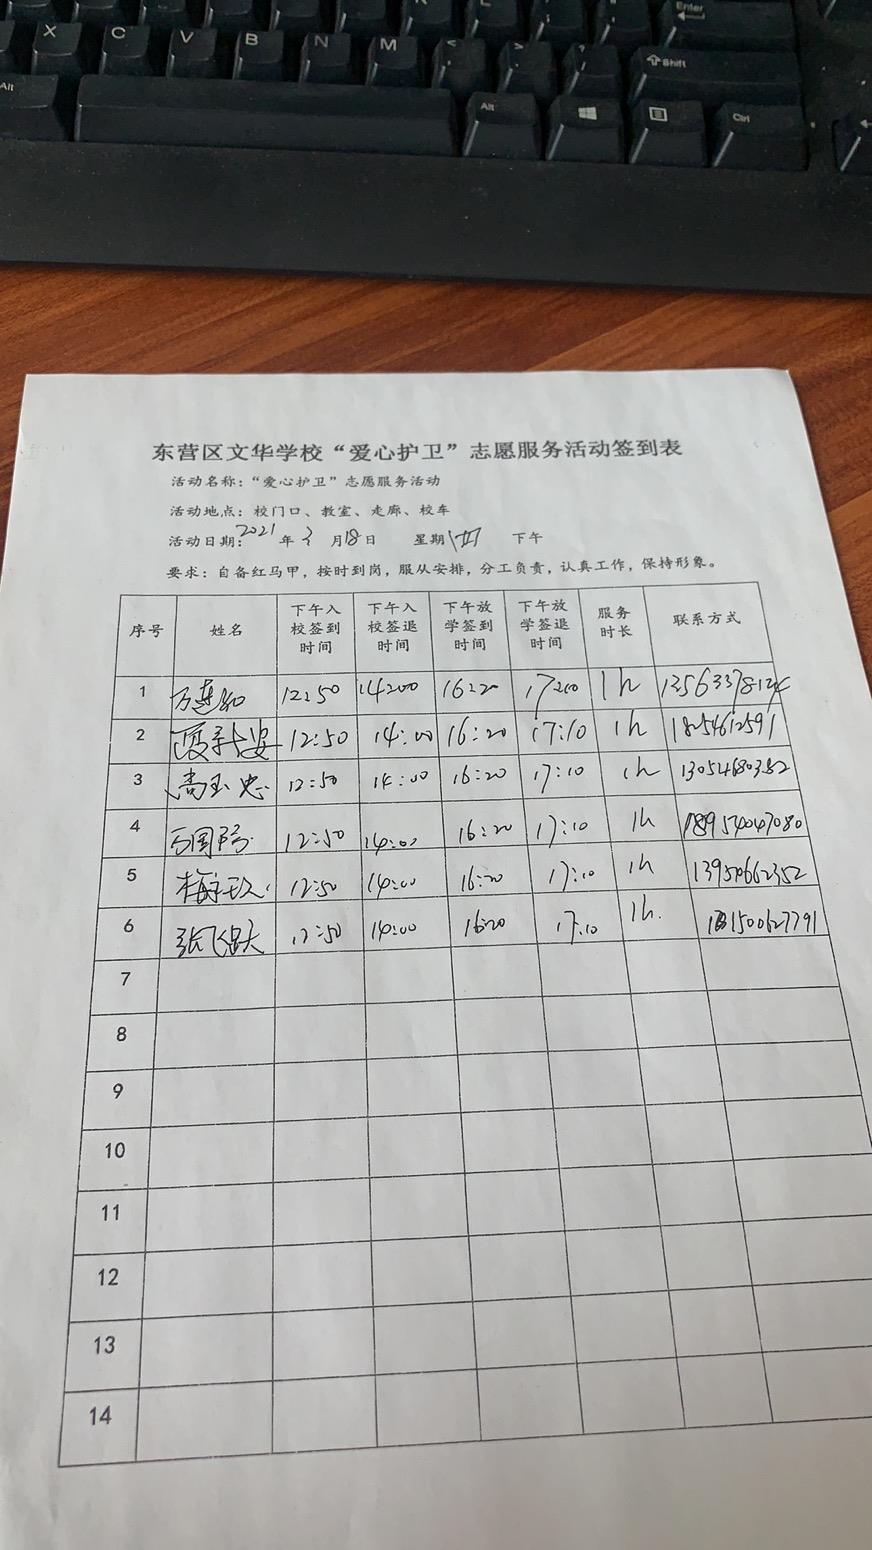 X C V B N M < > ? Enter
Alt Alt Shift Ctrl
东营区文华学校“爱心护卫”志愿服务活动签到表
活动名称：“爱心护卫”志愿服务活动
活动地点：校门口、教室、走廊、校车
活动日期：2021年3月18日 星期四 下午
要求：自备红马甲，按时到岗，服从安排，分工负责，认真工作，保持形象。
序号 姓名 下午入校签到时间 下午入校签退时间 下午放学签到时间 下午放学签退时间 服务时长 联系方式
1 12:50 14:00 16:20 1h
2 12:50 14:00 16:20 17:10 1h 18254612591
3 高玉忠 12:50 14:00 16:20 17:10 1h
4 12:50 14:00 16:20 17:10 1h 18954047080
5 12:50 14:00 16:20 17:10 1h
6 12:50 14:00 16:20 17:10 1h.
7
8
9
10
11
12
13
14